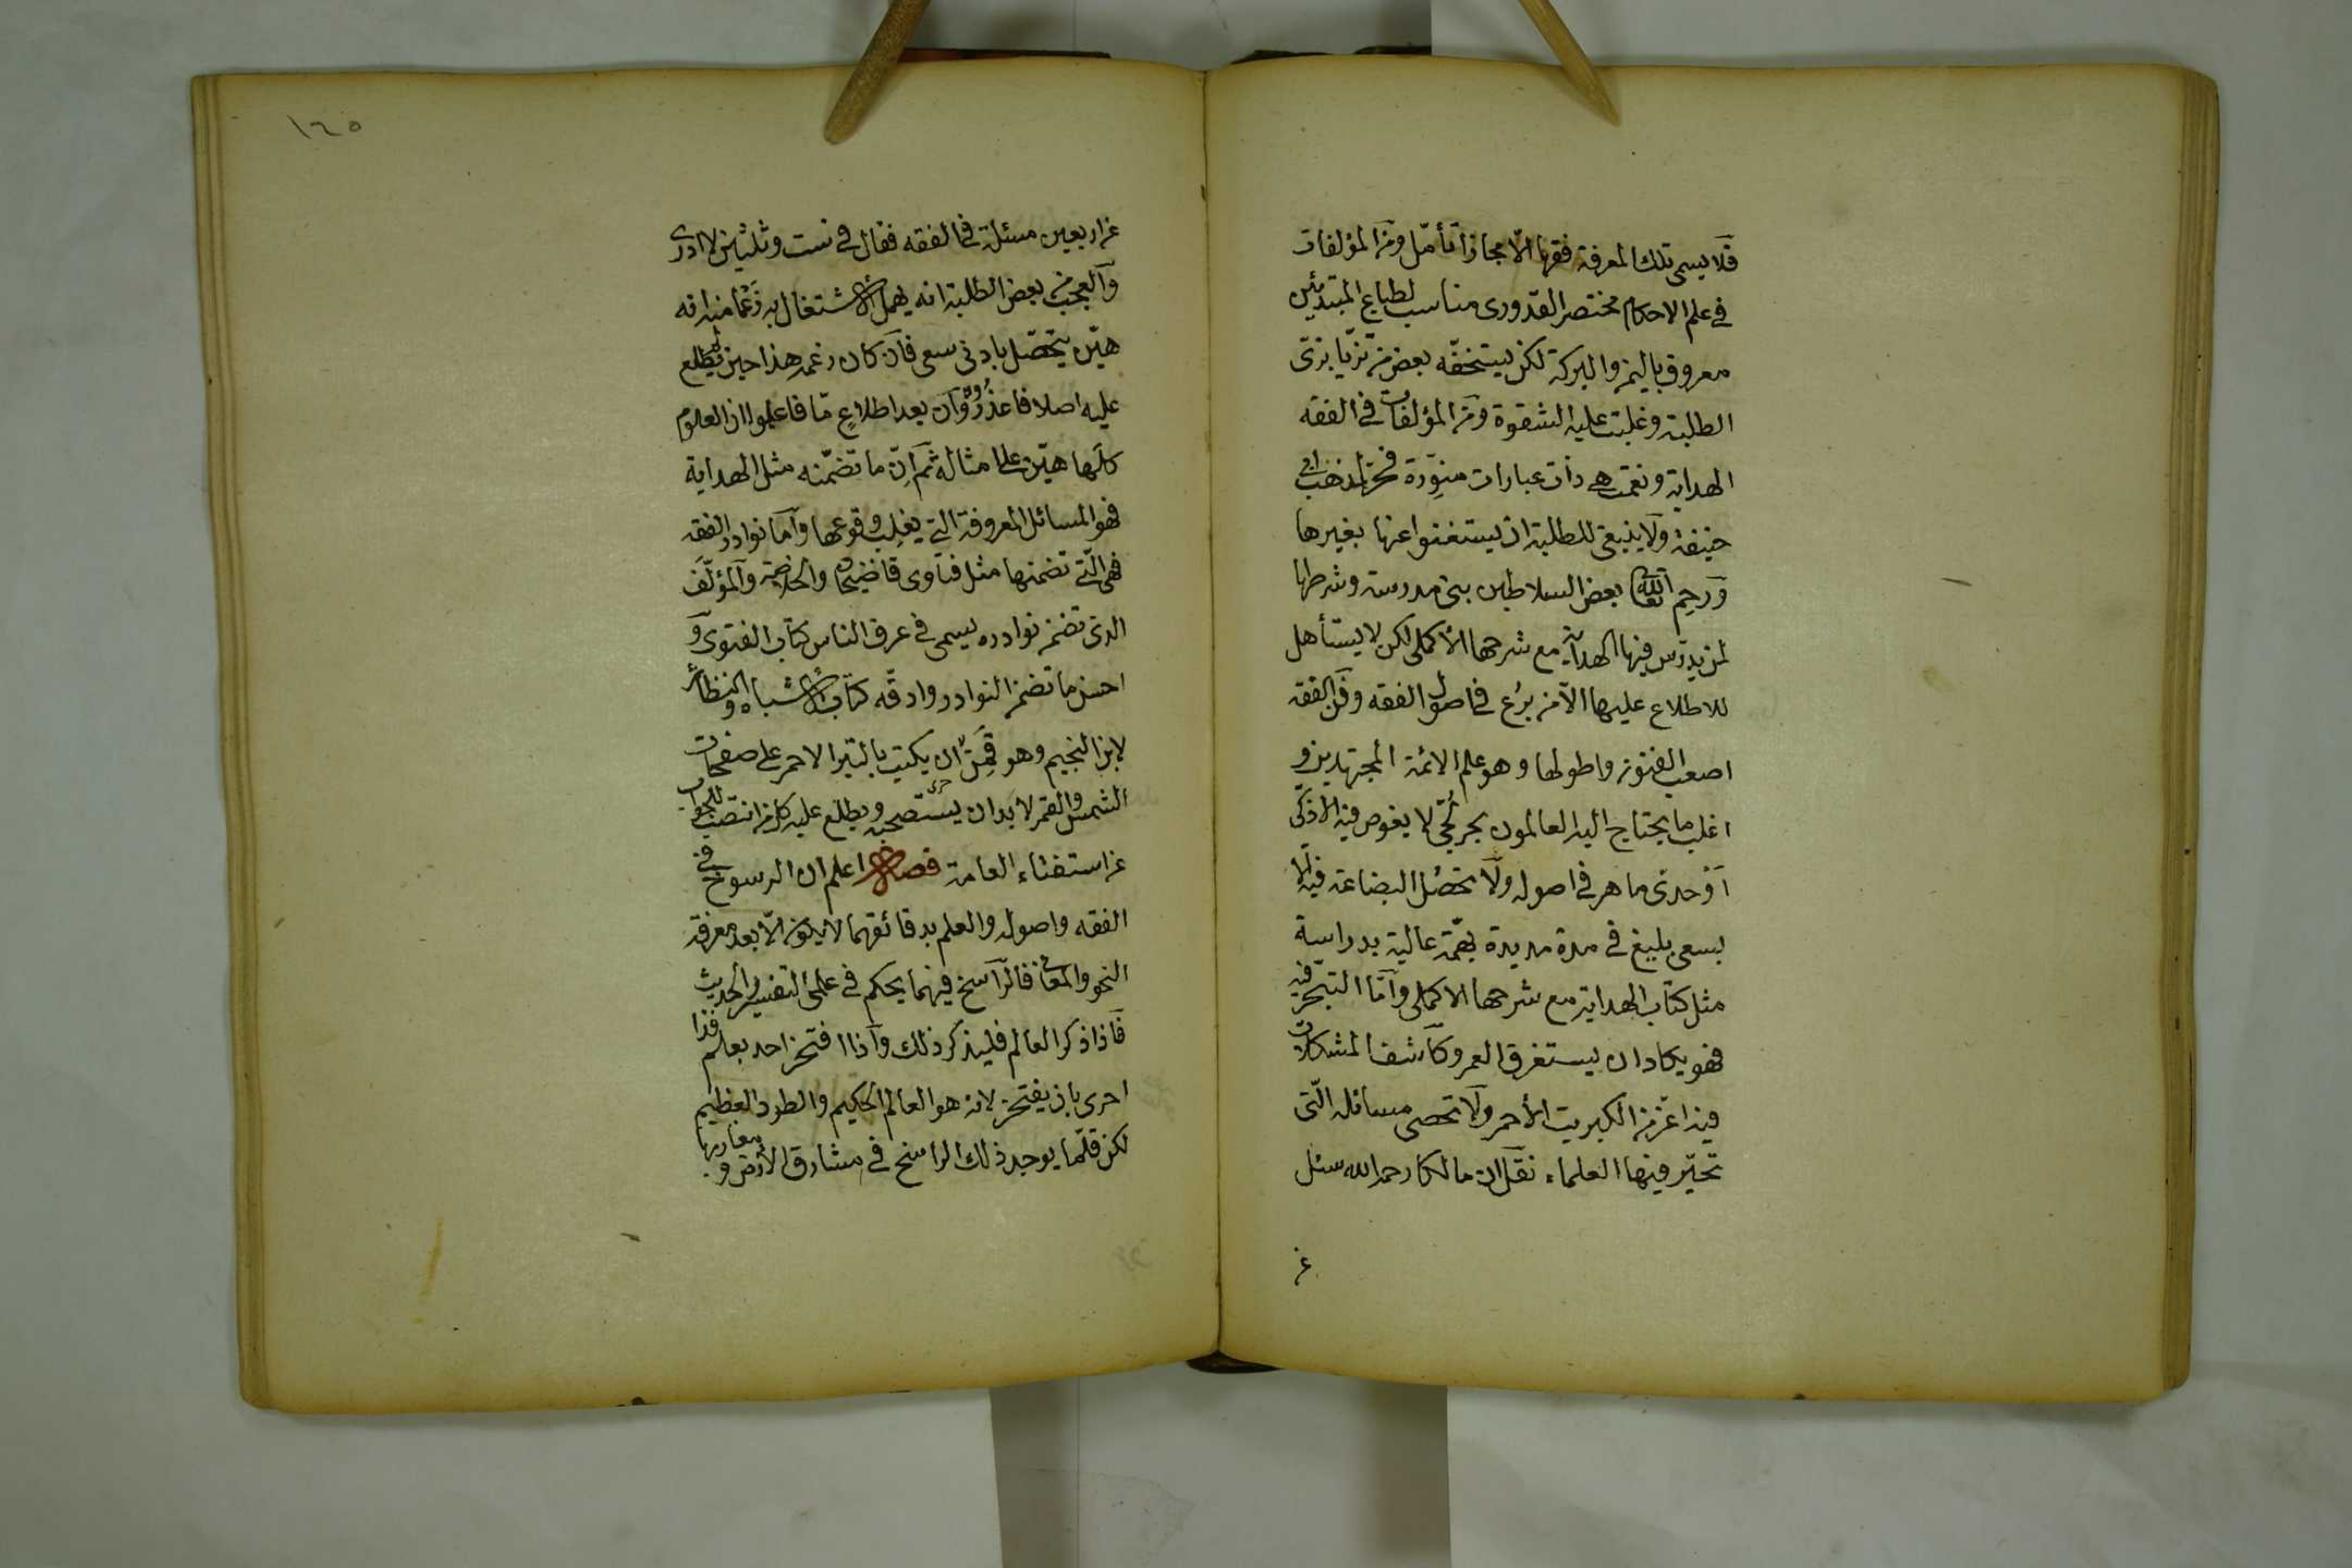 فلا يسمى تلك المعرفة فقها الّا مجازا تأمّل ومن المؤلفات
في علم الاحكام مختصر القدورى مناسب لطباع المبتدئين
معروف باليمن والبركة لكن يستخفّه بعض من تزيّا بزىّ
الطلبة وغلبت عليه الشقوة ومن المؤلفات في الفقه
الهداية ونعمت هي ذات عبارات منوّرة لمذهب ابى
حنيفة ولا ينبغى للطلبة ان يستغنوا عنها بغيرها
ورحم الله تعالى بعض السلاطين بنى مدرسة وشرطها
لمن يدرّس فيها الهداية مع شرحها الأكملى لكن لا يستأهل
للاطلاع عليها الّا من برع في اصول الفقه وفن الفقه
اصعب الفنون واطولها وهو علم الائمة المجتهدين و
اغلب ما يحتاج اليه العالمون بحر لجّى لا يغوص فيه الا ذكى
أوحدى ماهر في اصوله ولا تحصّل البضاعة فيه الّا
بسعى بليغ في مدة مديدة بهمّة عالية بدراسة
مثل كتاب الهداية مع شرحها الاكملى وأمّا التبحّر فيه
فهو يكاد ان يستغرق العمر وكاشف المشكلات
فيه اعزّ من الكبريت الأحمر ولا تحصى مسائله الّتى
تحيّر فيها العلماء نقل ان مالكا رحمه الله سئل
عن
١٦٥
عن اربعين مسئلة في الفقه فقال في ست وثلثين لا ادرى
والعجب من بعض الطلبة انه يهمل الاشتغال به زعما منه انه
هيّن يتحصّل بادنى سعى فان كان زعمه هذا حين لم يطلع
عليه اصلا فاعذروه وان بعد اطلاع مّا فاعلموا ان العلوم
كلّها هيّن على امثاله ثم انّ ما تضمّنه مثل الهداية
فهو المسائل المعروفة التى يغلب وقوعها وأما نوادر الفقه
فهى الّتى تضمنها مثل فتاوى قاضيخان والخلاصة والمؤلّف
الذى تضمن نوادره يسمى في عرف الناس كتاب الفتوى و
احسن ما تضمن النوادر وادقّه كتاب الاشباه والنظائر
لابن النجيم وهو قمن ان يكتب بالتبر الاحمر على صفحات
الشمس والقمر لا بد ان يستصحبه ويطلع عليه كل من انتصب للجواب
عن استفتاء العامة فصل اعلم ان الرسوخ في
الفقه واصوله والعلم بدقائقهما لا يكون الّا بعد معرفة
النحو والمعانى فالرّاسخ فيهما يحكم في علمى التفسير والحديث
فاذا ذكر العالم فليذكر ذلك وإذا افتخر احد بعلم فذا
احرى بان يفتخر لانه هو العالم الحكيم والطود العظيم
لكن قلّما يوجد ذلك الراسخ في مشارق الأرض و مغاربها